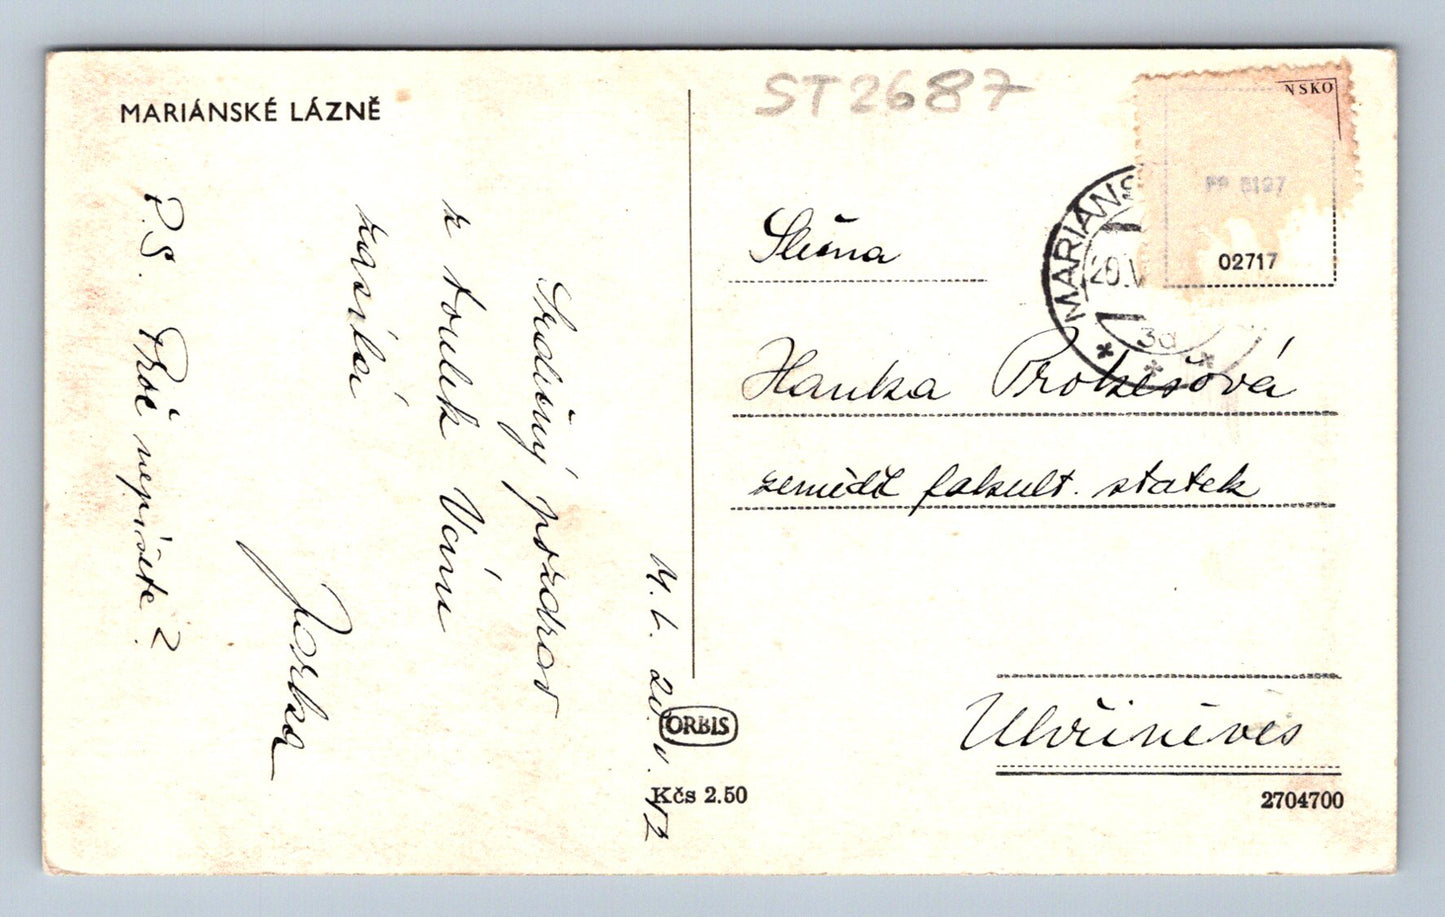 MARIÁNSKÉ LÁZNĚ
ST2687
NSKO
02717
MARIÁNS
20.V
M. L. 20. V. 52
Srdečný pozdrav
z toulek Vám
zasílá
Jarka
P.S. Proč nepíšete?
Slečna
Hanka Prokešová
zeměděl fakult. statek
Uhříněves
ORBIS
Kčs 2.50
2704700